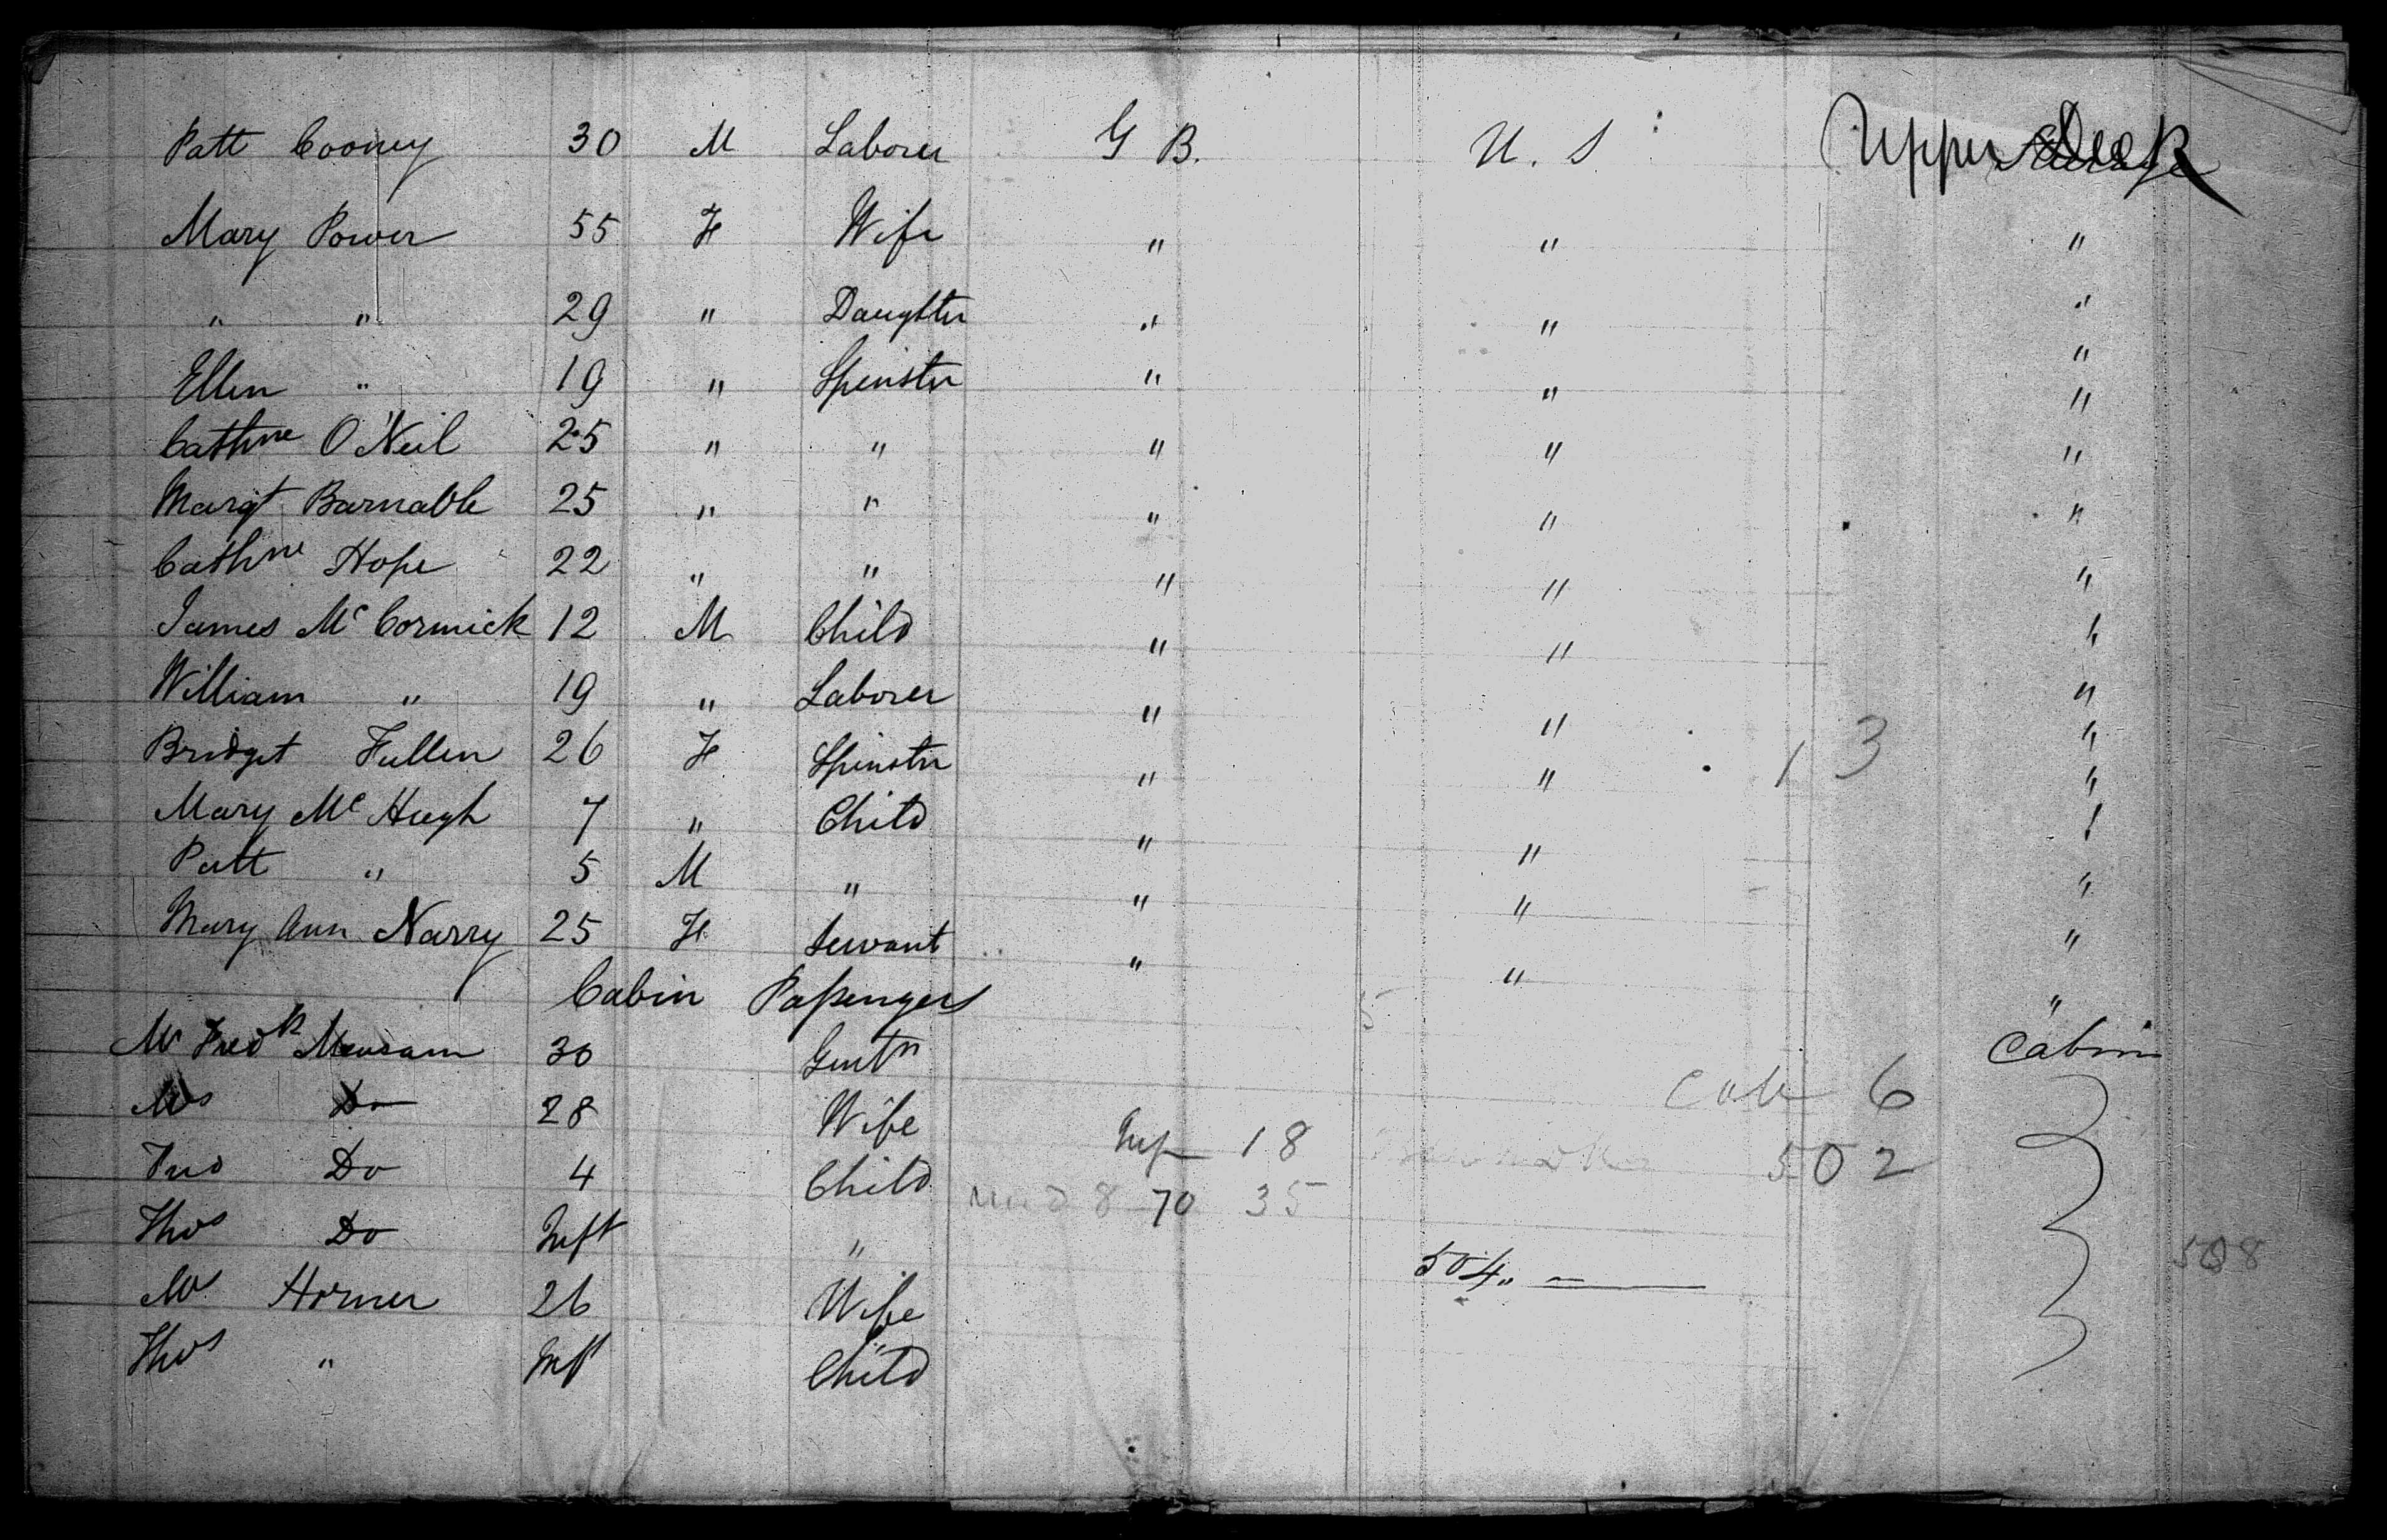 Patt Cooney 30 M Laborer G B. U. S Upper Deck
Mary Power 55 F Wife " " "
" " 29 " Daughter " " "
Ellen " 19 " Spinster " " "
Cathne O'Neil 25 " " " " "
Margt Barnable 25 " " " " "
Cathne Hope 22 " " " " "
James Mc Cormick 12 M Child " " "
William " 19 " Laborer " " "
Bridget Fullen 26 F Spinster " " 13 "
Mary Mc Hugh 7 " Child " " "
Patt " 5 M " " " "
Mary Ann Narry 25 F Servant " " "
Cabin Passengers "
Mr Fredk 30 Gentn Cabin
Mrs Do 28 Wife Cab 6
Do 4 Child Inf 18 502
Thos Do Inft " 8 70 35
Mrs Horner 26 Wife 504 508
Thos " Inft Child